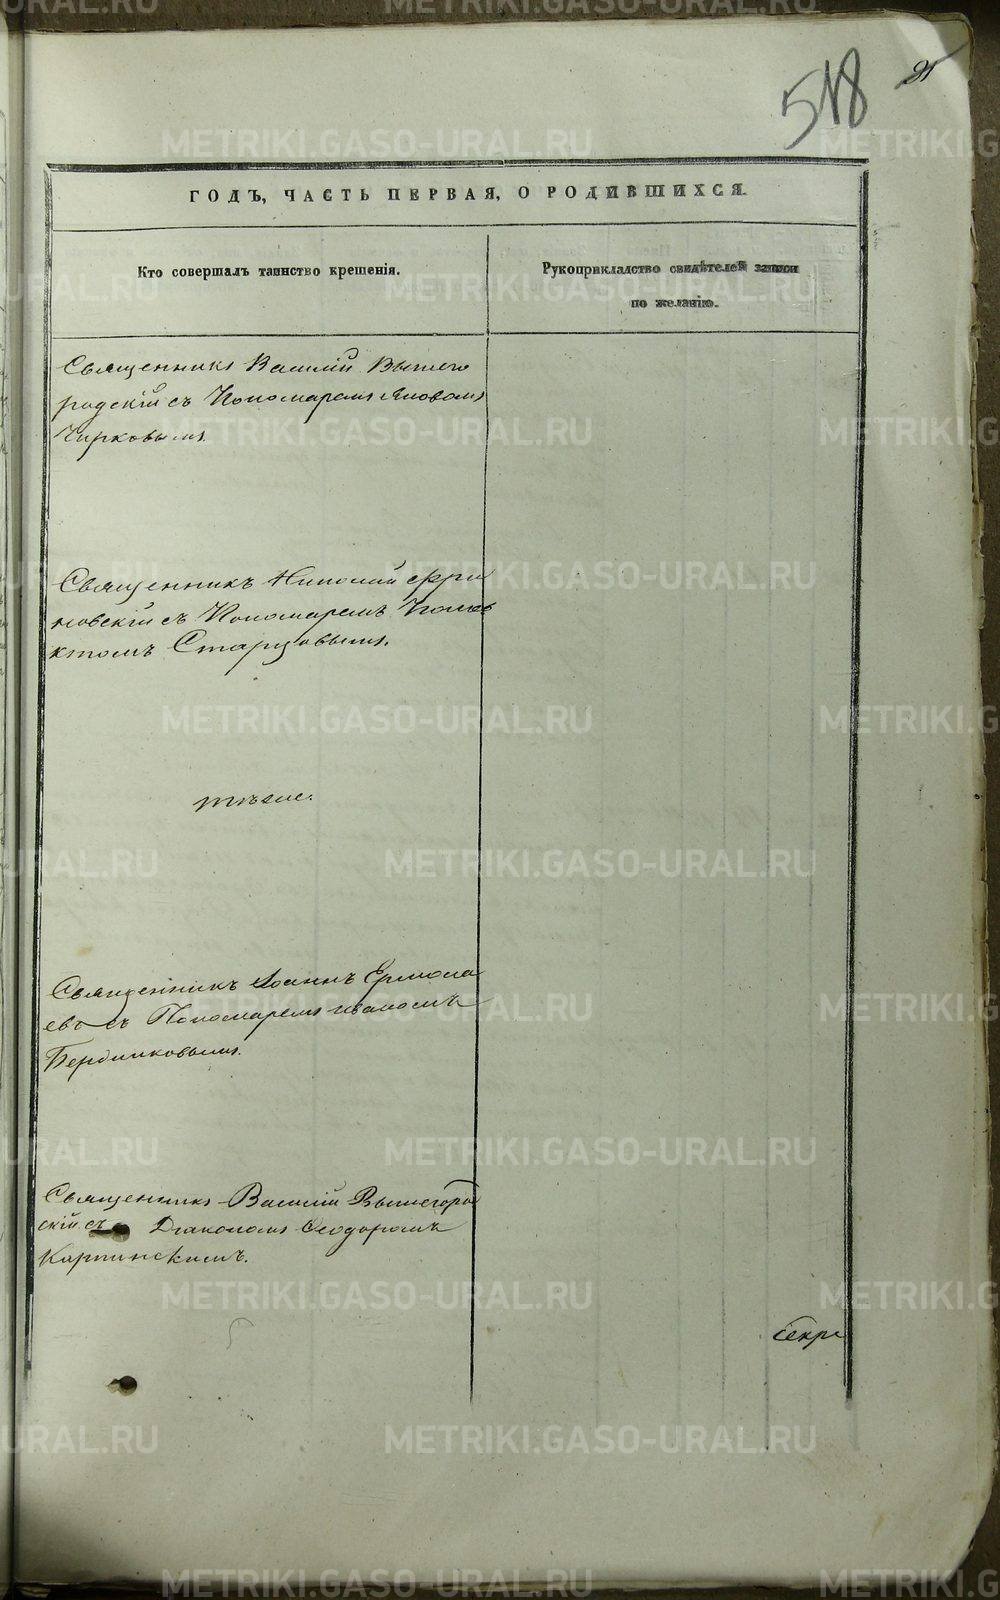 518
21
ГОДЪ, ЧАСТЬ ПЕРВАЯ, О РОДИВШИХСЯ.
Кто совершалъ таинство крещенія.
Рукоприкладство свидѣтелей записи
по желанію.
Священникъ Василій Вышего
родскій съ Пономаремъ Яковомъ
Чирковымъ
Священникъ Николай
новскій съ Пономаремъ
Старцовымъ.
тѣже.
Священникъ Іоаннъ Ермола
евъ съ Пономаремъ Иваномъ
Бердниковымъ.
Священникъ Василій Вышегород
скій съ Діакономъ Ѳеодоромъ
Карпинскимъ.
Секре
METRIKI.GASO-URAL.RU